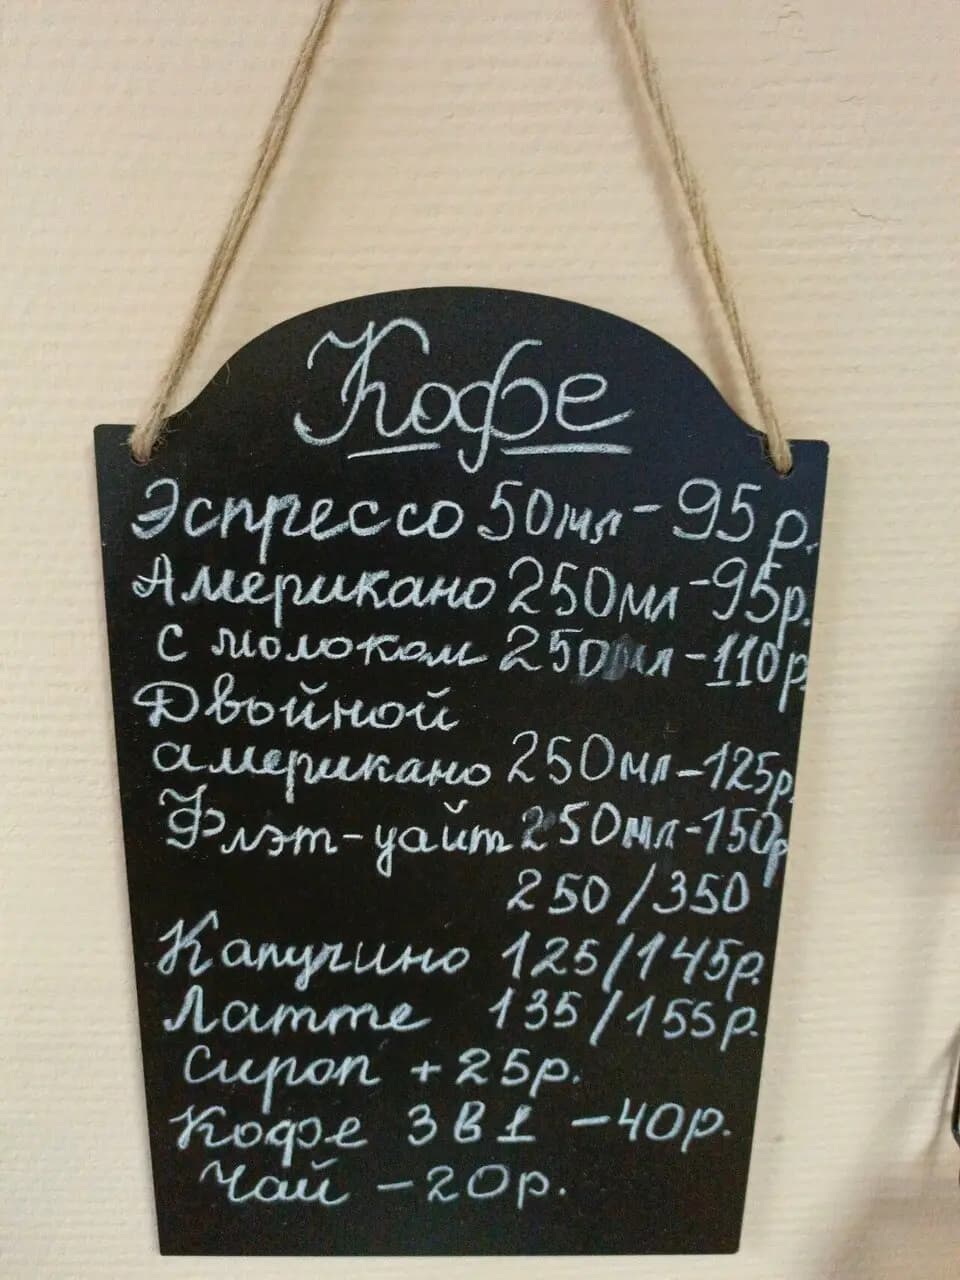 Кофе
Эспрессо 50мл - 95р.
Американо 250мл - 95р.
с молоком 250мл - 110р
Двойной
американо 250мл - 125р.
Флэт-уайт 250мл - 150р
250/350
Капучино 125/145р.
Латте 135/155р.
Сироп + 25р.
Кофе 3 в 1 - 40р.
Чай - 20р.